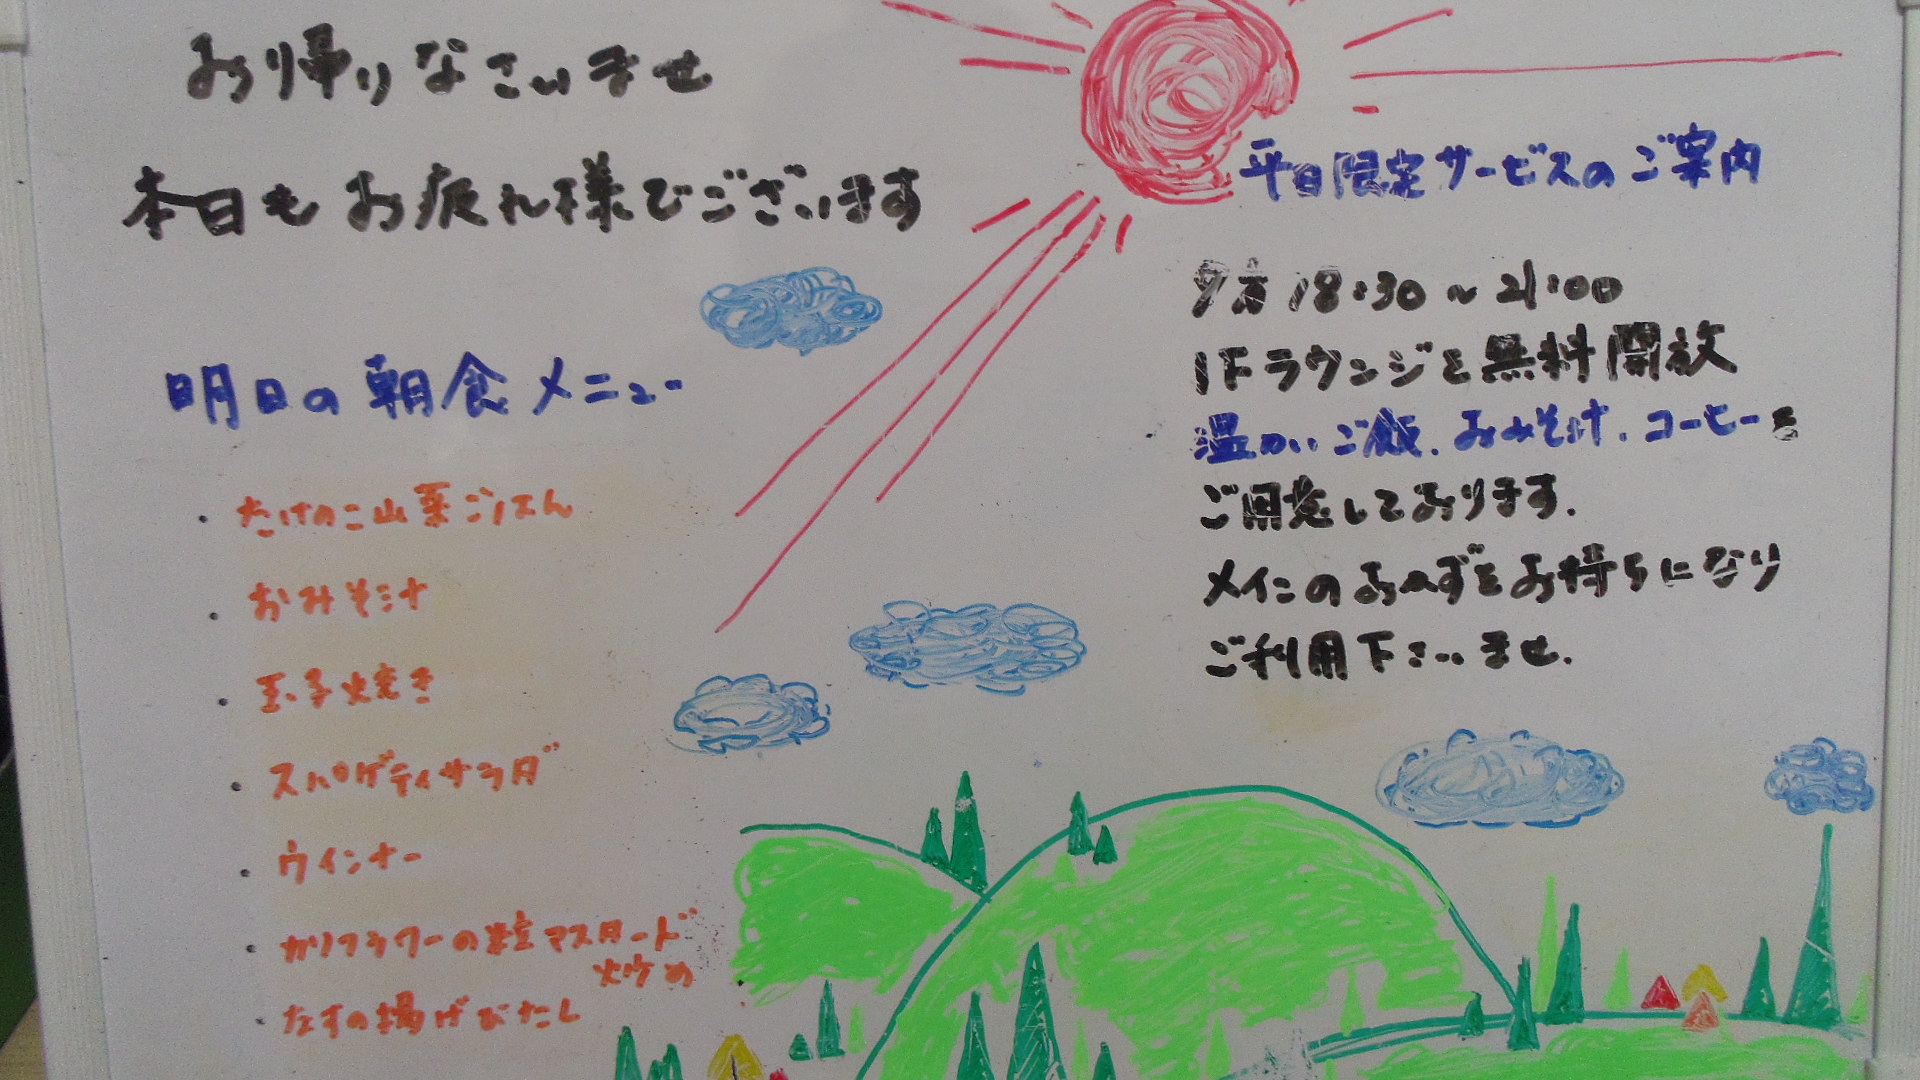 お帰りなさいませ
本日もお疲れ様でございます
明日の朝食メニュー
・たけのこ山菜ごはん
・おみそ汁
・玉子焼き
・スパゲティサラダ
・ウインナー
・カリフラワーの粒マスタード
炒め
・なすの揚げびたし
平日限定サービスのご案内
夕方18:30~21:00
1Fラウンジを無料開放
温かいご飯.おみそ汁.コーヒーを
ご用意しております.
メインのおかずをお持ちになり
ご利用下さいませ.